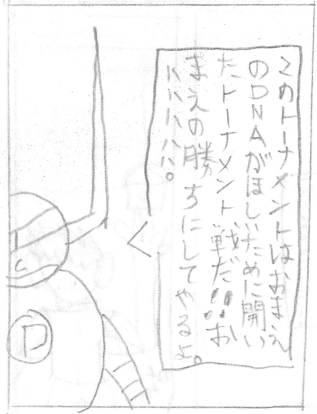 このトーナメントはおまえ
のDNAがほしいために開い
たトーナメント戦だ!!お
まえの勝ちにしてやるよ。
ハハハハハ。
D